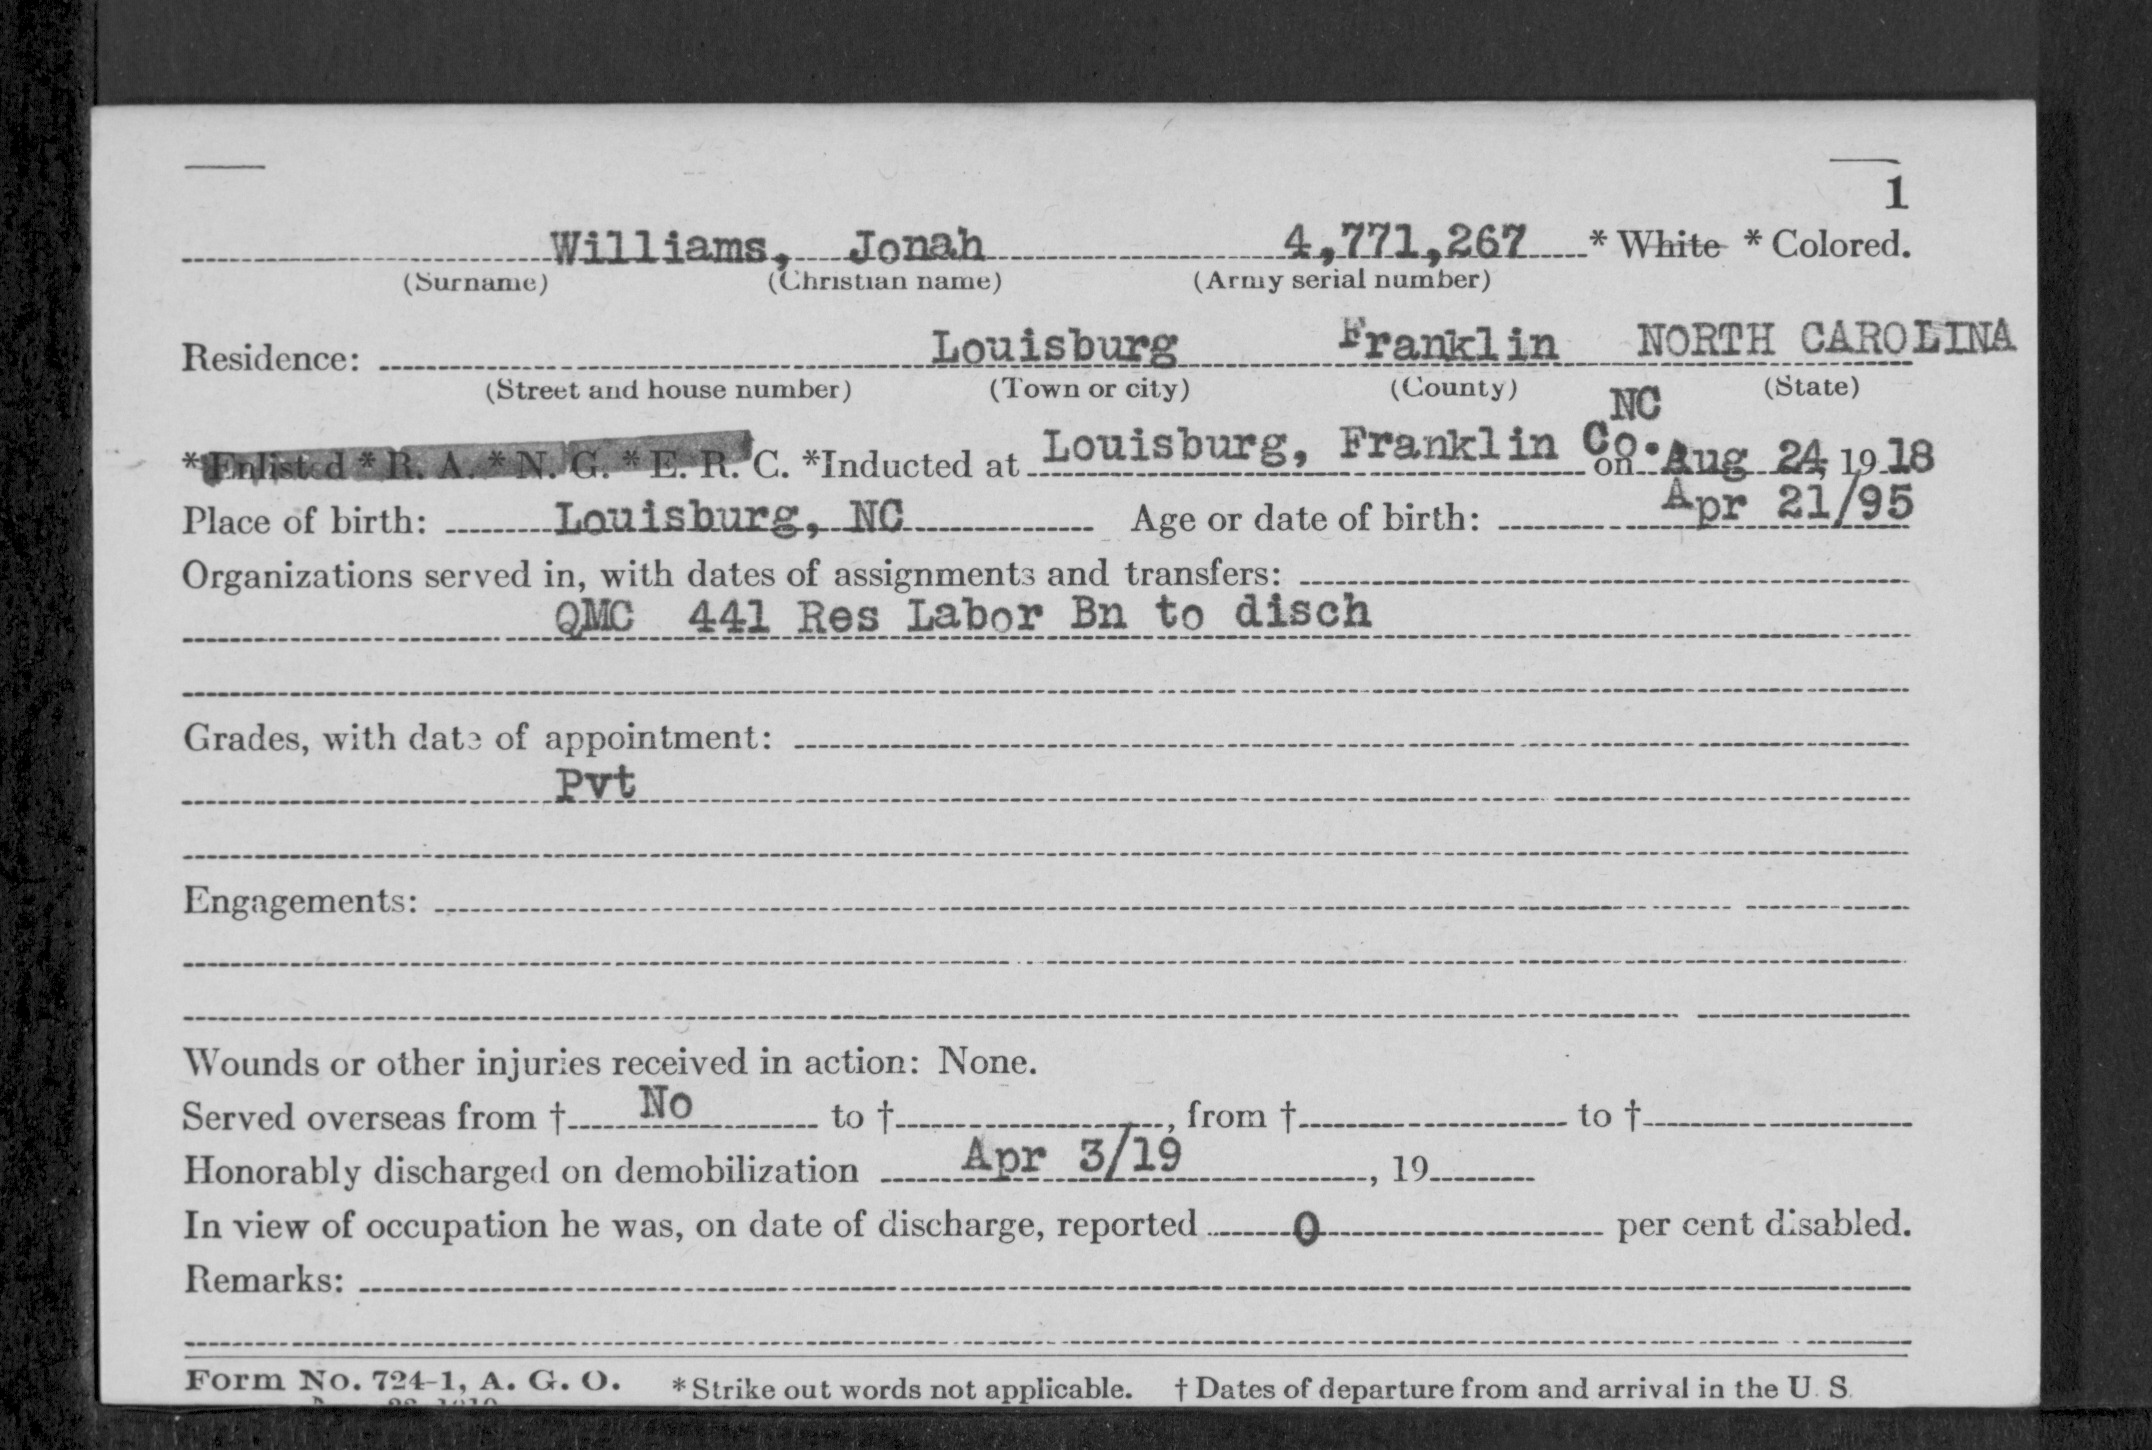 1
Williams, Jonah 4,771,267 * White * Colored.
(Surname) (Christian name) (Army serial number)
Residence: Louisburg Franklin NORTH CAROLINA
(Street and house number) (Town or city) (County) (State)
NC
*Enlisted *R. A. *N. G. *E. R. C. *Inducted at Louisburg, Franklin Co. on Aug 24, 1918
Place of birth: Louisburg, NC Age or date of birth: Apr 21/95
Organizations served in, with dates of assignments and transfers:
QMC 441 Res Labor Bn to disch
Grades, with date of appointment:
Pvt
Engagements:
Wounds or other injuries received in action: None.
Served overseas from † No to †, from † to †
Honorably discharged on demobilization Apr 3/19, 19
In view of occupation he was, on date of discharge, reported 0 per cent disabled.
Remarks:
Form No. 724-1, A. G. O. *Strike out words not applicable. †Dates of departure from and arrival in the U. S.